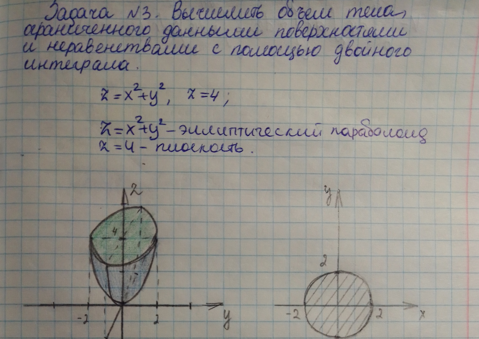 Задача №3. Вычислить объем тела,
ограниченного данными поверхностями
и неравенствами с помощью двойного
интеграла.
z=x²+y², z=4;
z=x²+y² - эллиптический параболоид
z=4 - плоскость.
z
4
-2 2 y
y
2
-2 2 x